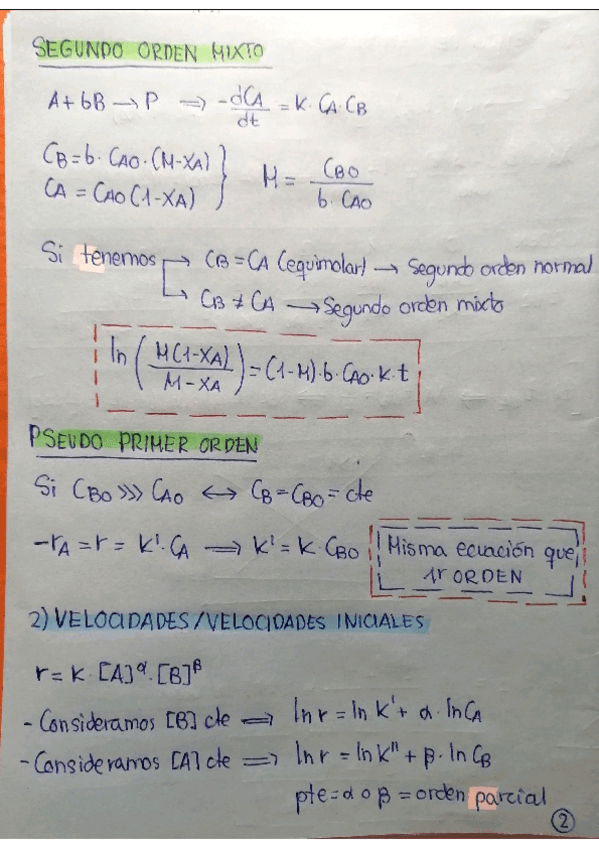 SEGUNDO ORDEN MIXTO
A + bB → P ⟹ -dCA/dt = K · CA · CB
CB = b · CAO · (M-XA)
CA = CAO (1-XA)
M = CBO / b · CAO
Si tenemos → CB = CA (equimolar) → Segundo orden normal
↳ CB ≠ CA → Segundo orden mixto
ln (M(1-XA) / M-XA) = (1-M) · b · CAO · K · t
PSEUDO PRIMER ORDEN
Si CBO >>> CAO ↔ CB = CBO = cte
-rA = r = K' · CA ⟹ K' = K · CBO
Misma ecuación que
1r ORDEN
2) VELOCIDADES / VELOCIDADES INICIALES
r = K · [A]^α · [B]^β
- Consideramos [B] cte ⟹ ln r = ln K' + α · ln CA
- Consideramos [A] cte ⟹ ln r = ln K'' + β · ln CB
pte = α o β = orden parcial
2